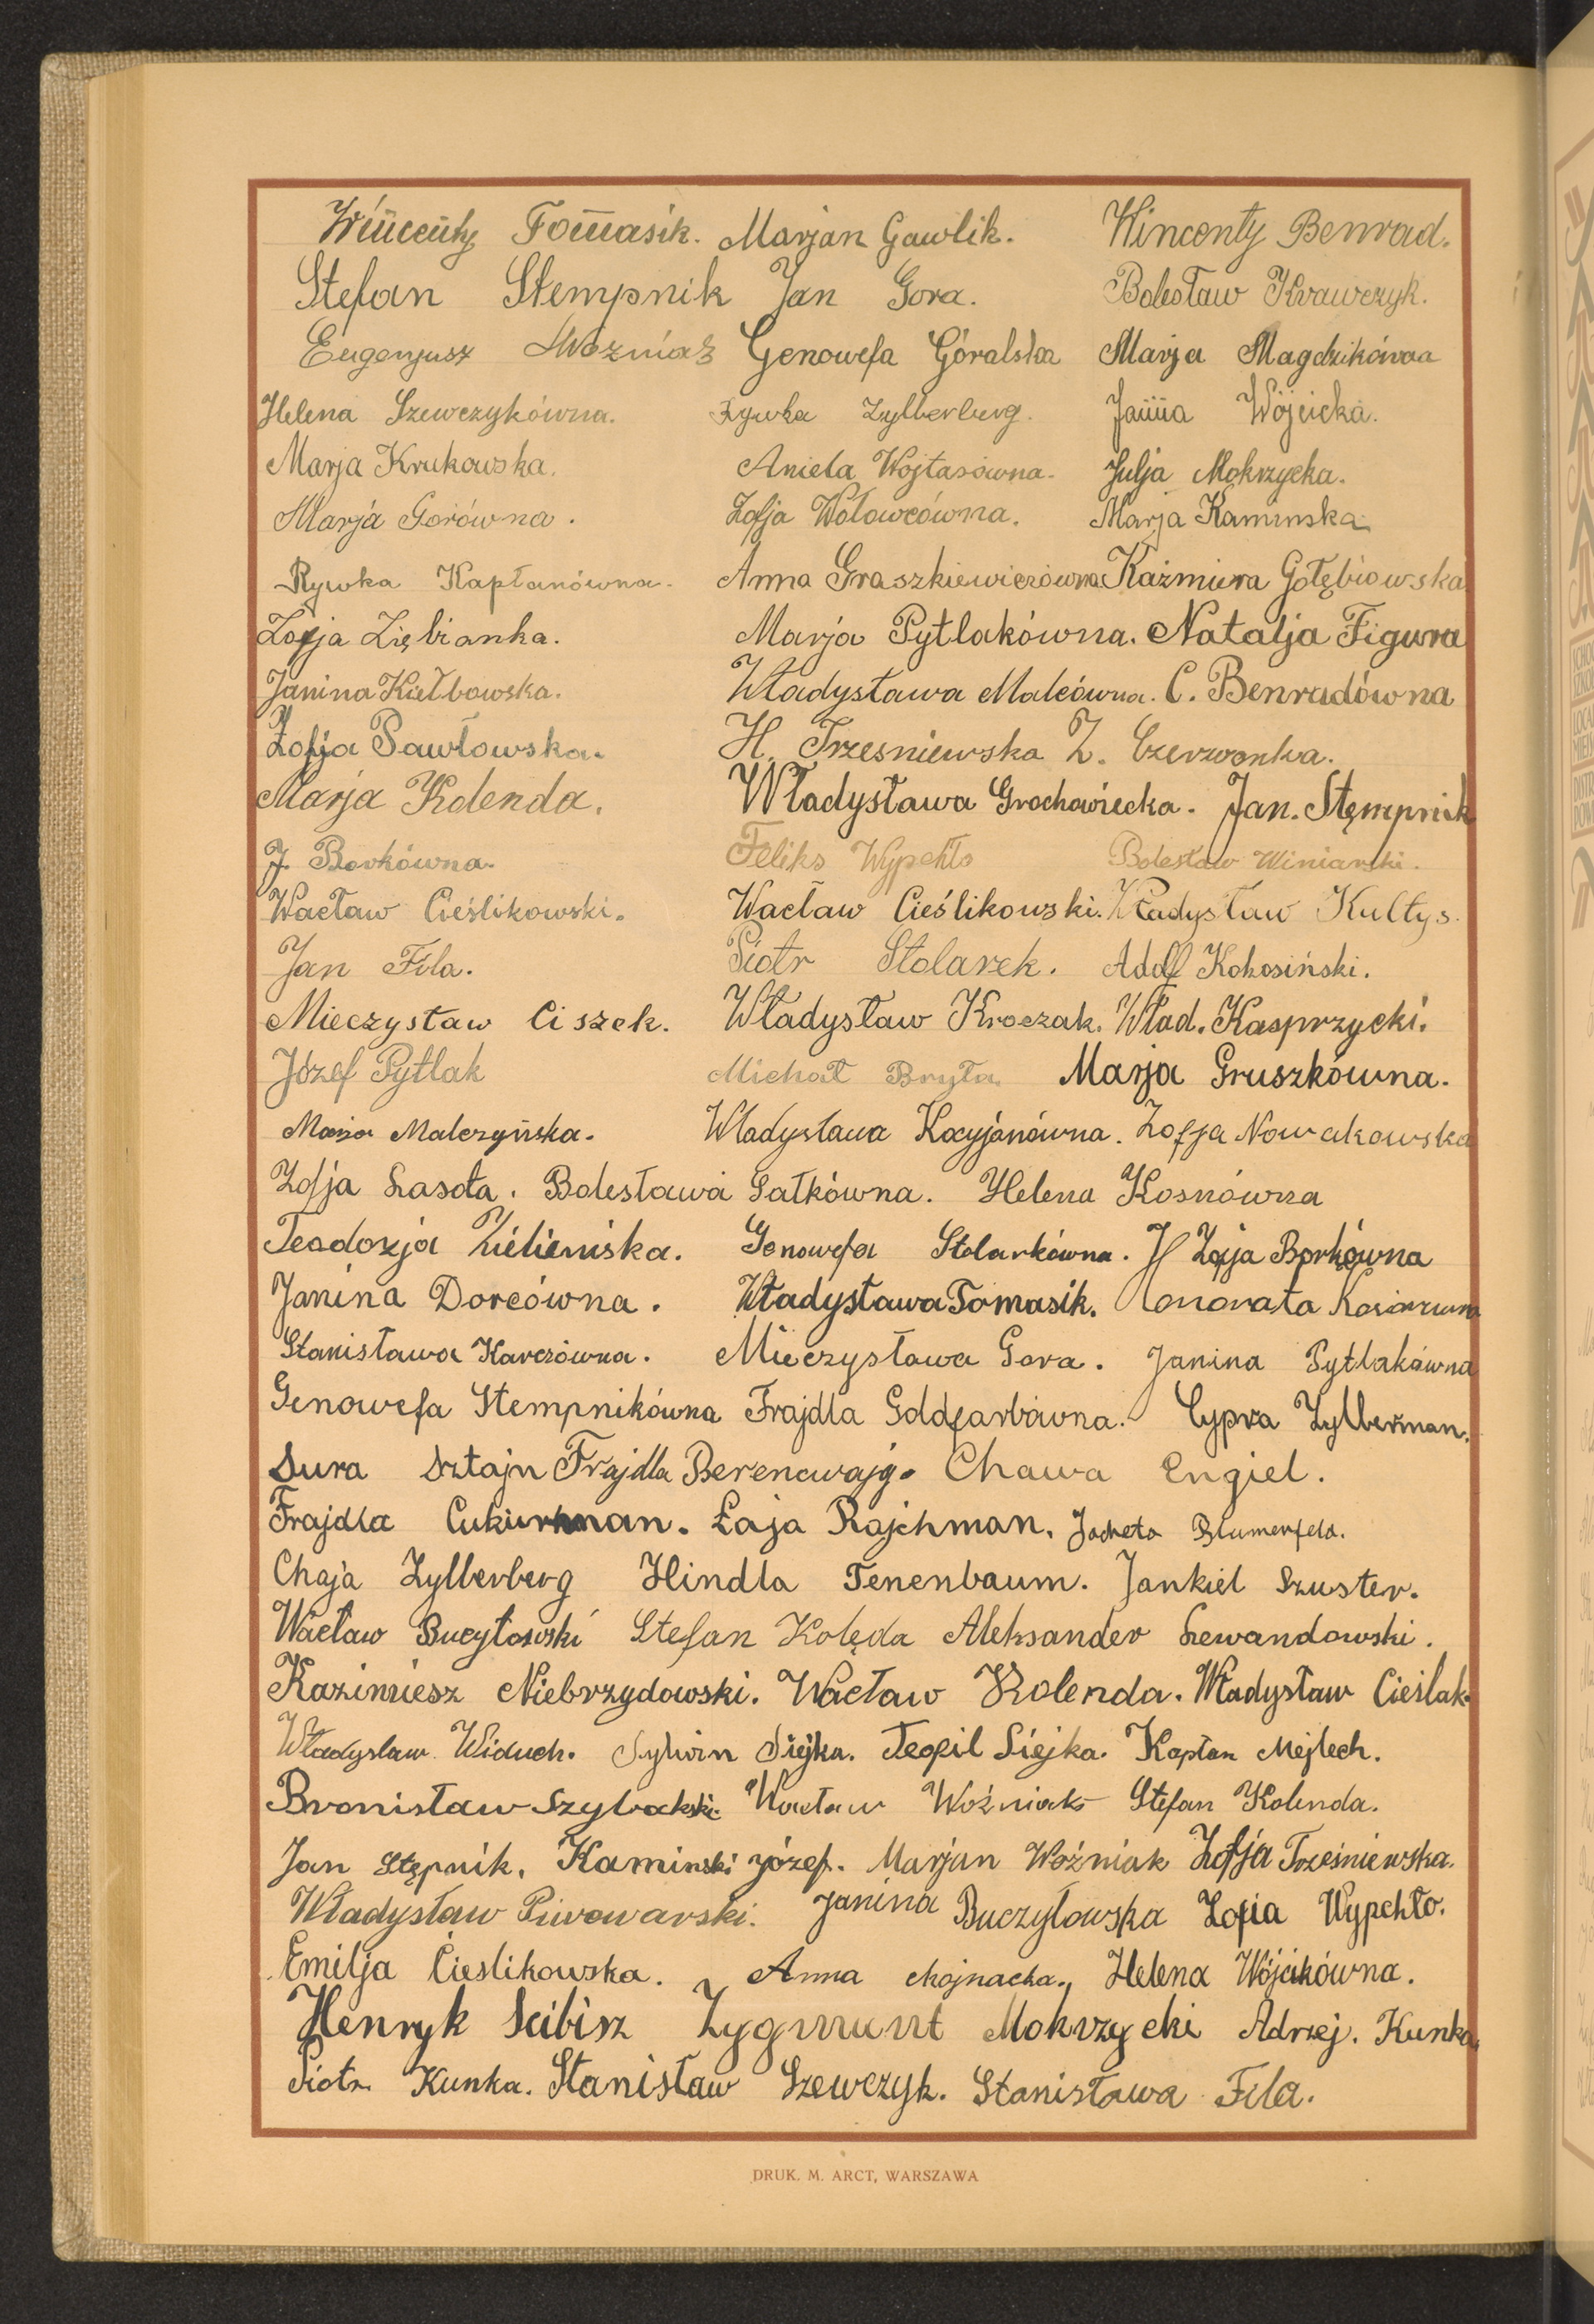 Wincenty Tomasik. Marjan Gawlik. Wincenty Benrad.
Stefan Stempnik Jan Gora. Bolesław Krawczyk.
Eugenjusz Woźniak Genowefa Góralska Marja Magdzikówna
Helena Szewczykówna. Rywka Zylberberg. Janina Wójcicka.
Marja Krukowska. Aniela Wojtasówna. Julja Mokrzycka.
Marja Gorówna. Zofja Wołowcówna. Marja Kaminska
Rywka Kapłanówna. Anna Graszkiewiczówna Kaźmiera Gołębiowska
Zofja Ziębianka. Marja Pytlakówna. Natalja Figura
Janina Kiełbowska. Władysława Malcówna. C. Benradówna
Zofja Pawłowska. H. Trzesniewska Z. Czerwonka.
Marja Kolenda. Władysława Grochowiecka. Jan. Stępmpnik
J. Borkówna. Feliks Wypchło Bolesław Winiarski.
Wacław Cieślikowski. Wacław Cieślikowski. Władysław Kułtys.
Jan Fila. Piotr Stolarek. Adolf Kokosiński.
Mieczysław Ciszek. Władysław Kroczak. Wład. Kasprzycki.
Józef Pytlak Michał Bryła. Marja Gruszkówna.
Marja Malczyńska. Władysława Kacyjanówna. Zofja Nowakowska
Zofja Lasota. Bolesława Gałkówna. Helena Kosnówna
Teodozja Zielieniska. Genowefa Stolarkówna. H Zofja Borkówna
Janina Dorcówna. Władysława Tomasik. Honorata
Stanisława Karczówna. Mieczysława Gora. Janina Pytlakówna
Genowefa Stempnikówna Frajdla Goldfarbówna. Cypra Zylberman.
Sura Sztajn Frajdla Berencwajg. Chawa Engiel.
Frajdla Cukierman. Łaja Rajchman. Jacheta Blumenfeld.
Chaja Zylberberg Hindla Tenenbaum. Jankiel Szuster.
Wacław Bucyłowski Stefan Kolęda Aleksander Lewandowski.
Kazimiesz Niebrzydowski. Wacław Kolenda. Władysław Cieślak.
Władysław Widuch. Sylwin Siejka. Teofil Siejka. Kapłan Mejlech.
Bronisław Szybalski. Wacław Woźniak Stefan Kolenda.
Jan Stępnik. Kaminski józef. Marjan Woźniak Zofja Trześniewska.
Władysław Piwowarski. Janina Buczyłowska Zofia Wypchło.
Emilja Cieslikowska. Anna chojnacka. Helena Wójcikówna.
Henryk Scibisz Zygmunt Mokrzycki Adrzej. Kunka.
Piotr Kunka. Stanisław Szewczyk. Stanisława Fila.
DRUK. M. ARCT, WARSZAWA